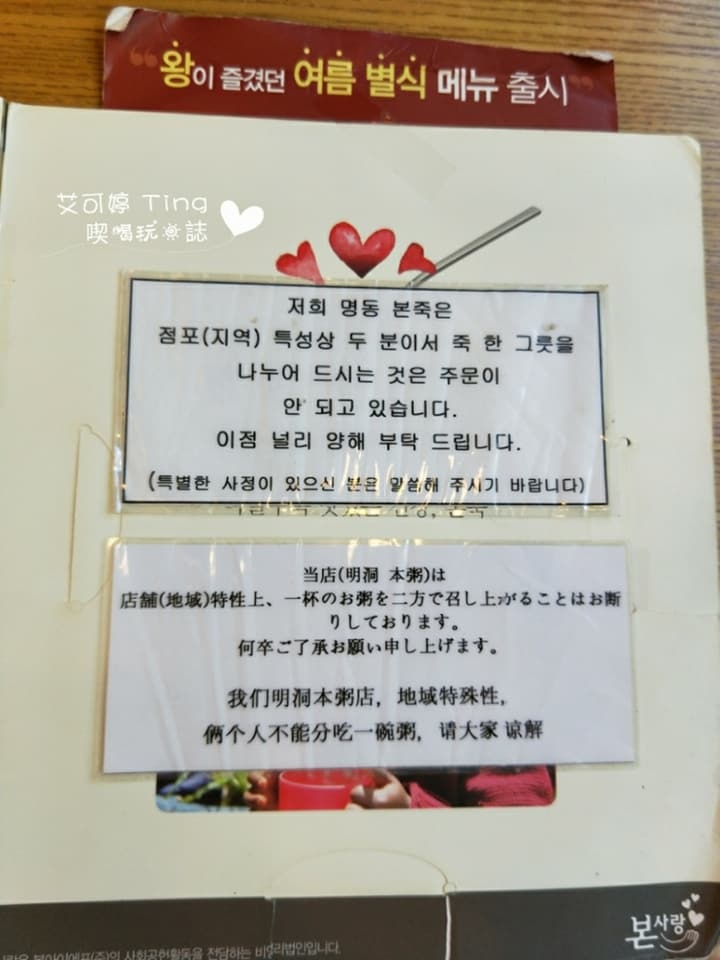 “왕이 즐겼던 여름 별식 메뉴 출시”
艾可婷 Ting
喫喝玩樂誌
저희 명동 본죽은
점포(지역) 특성상 두 분이서 죽 한 그릇을
나누어 드시는 것은 주문이
안 되고 있습니다.
이점 널리 양해 부탁 드립니다.
(특별한 사정이 있으신 분은 말씀해 주시기 바랍니다)
当店(明洞 本粥)は
店舗(地域)特性上、一杯のお粥を二方で召し上がることはお断
りしております。
何卒ご了承お願い申し上げます。
我们明洞本粥店，地域特殊性，
俩个人不能分吃一碗粥，请大家 谅解
본사랑
사회공헌활동을 전담하는 비영리법인입니다.